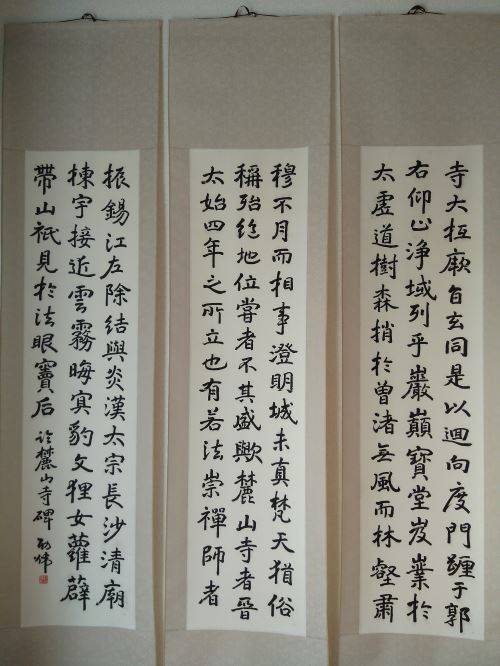 寺大抵厥旨玄同是以迴向度門躔于郭
右仰止淨域列乎巖巔寶堂岌嶪於
太虛道樹森捎於曾渚無風而林壑肅
穆不月而相事澄明城未真梵天猶俗
稱殆絕地位嘗者不其盛歟麓山寺者晉
太始四年之所立也有若法崇禪師者
振錫江左除結與炎漢太宗長沙清廟
棟宇接近雲霧晦冥豹文狸女蘿薜
帶山祇見於法眼竇后 麓山寺碑